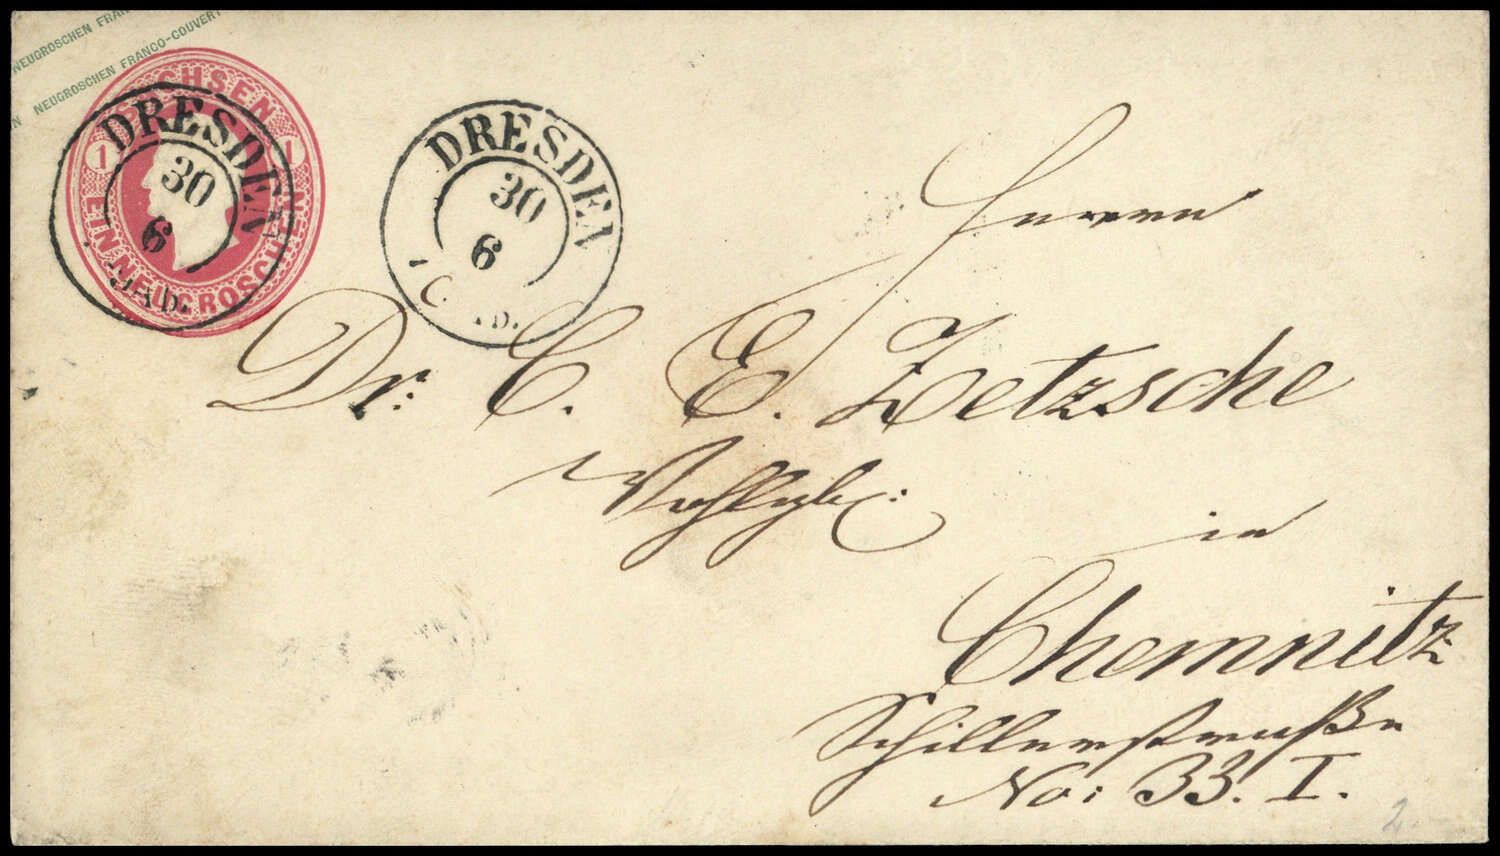 NEUGROSCHEN FRAN
IN NEUGROSCHEN FRANCO-COUVERT
CHSEN
1 1
EIN NEUGROSCHEN
DRESDEN
30
6
AD.
DRESDEN
30
6
D.
Herrn
Dr: C. E. Zetzsche
Wohlgb:
in
Chemnitz
Schillerstraße
No: 33. I.
2.